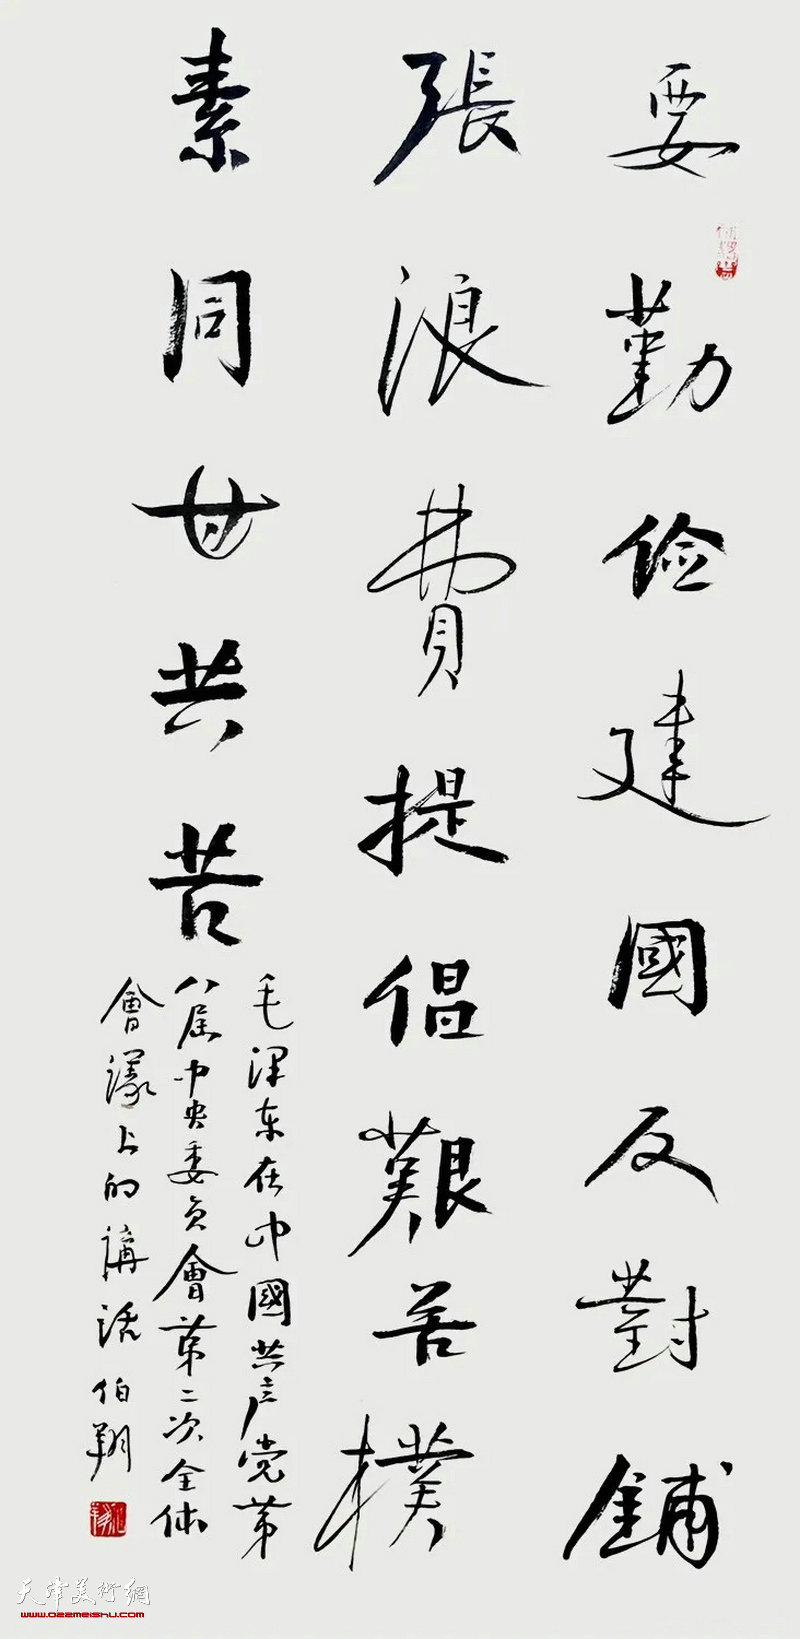 要勤俭建國反對鋪
張浪費提倡艱苦樸
素同甘共苦
毛泽东在中國共产党第
八届中央委员會第二次全体
會議上的講話 伯翔
天津美術網
www.022meishu.com